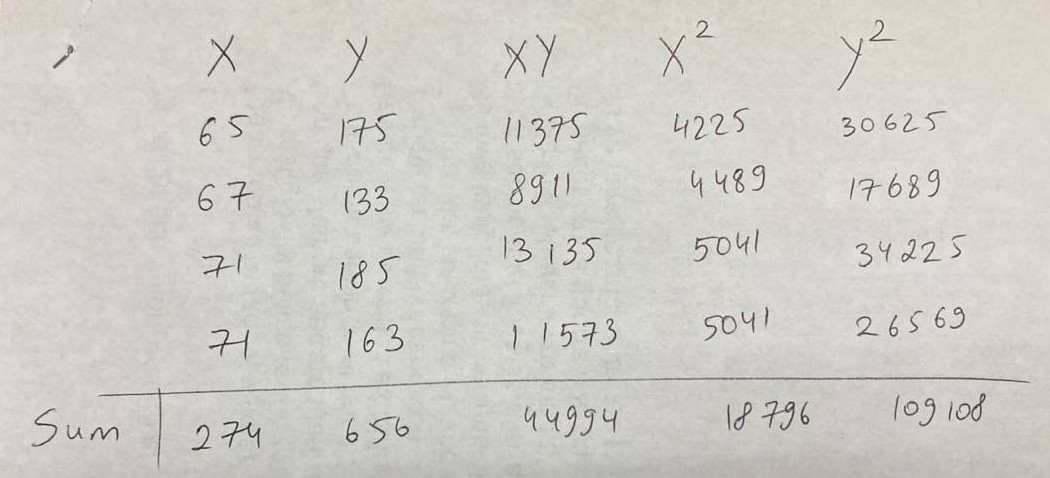 X Y XY X² Y²
65 175 11375 4225 30625
67 133 8911 4489 17689
71 185 13135 5041 34225
71 163 11573 5041 26569
Sum 274 656 44994 18796 109108